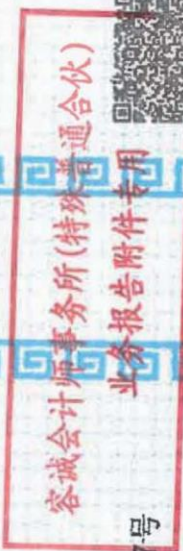 容诚会计师事务所(特殊普通合伙)
业务报告附件专用
号